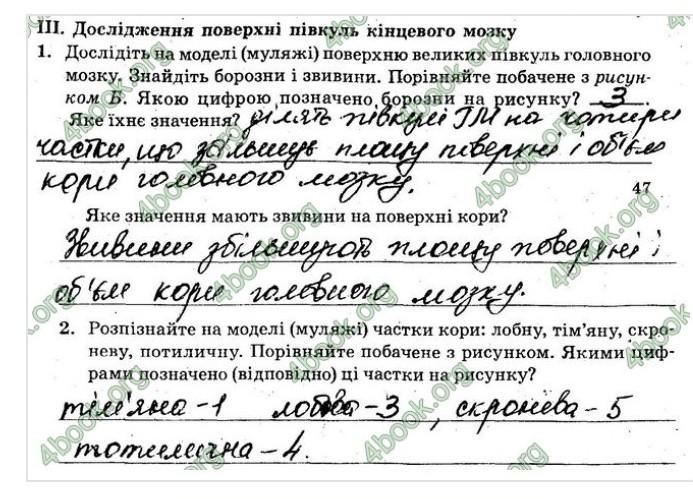 III. Дослідження поверхні півкуль кінцевого мозку
1. Дослідіть на моделі (муляжі) поверхню великих півкуль головного
мозку. Знайдіть борозни і звивини. Порівняйте побачене з рисун-
ком Б. Якою цифрою позначено борозни на рисунку? 3.
Яке їхнє значення? ділять півкулі ГМ на чотири
частки, що збільшує площу поверхні і об'єм
кори головного мозку.
47
Яке значення мають звивини на поверхні кори?
Звивини збільшують площу поверхні і
об'єм кори головного мозку.
2. Розпізнайте на моделі (муляжі) частки кори: лобну, тім'яну, скро-
неву, потиличну. Порівняйте побачене з рисунком. Якими циф-
рами позначено (відповідно) ці частки на рисунку?
тім'яна – 1 лобова – 3, скронева – 5
потилична – 4.
4book.org